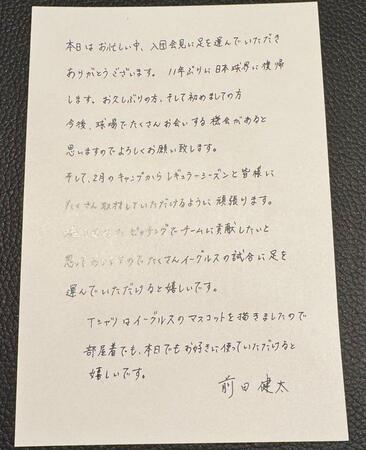 本日はお忙しい中、入団会見に足を運んでいただき
ありがとうございます。11年ぶりに日本球界に復帰
します。お久しぶりの方、そして初めましての方
今後、球場でたくさんお会いする機会があると
思いますのでよろしくお願い致します。
そして、2月のキャンプからレギュラーシーズンと皆様に
たくさん取材していただけるように頑張ります。
ピッチングでチームに貢献したいと
思っておりますのでたくさんイーグルスの試合に足を
運んでいただけると嬉しいです。
Tシャツはイーグルスのマスコットを描きましたので
部屋着でも、本日でもお好きに使っていただけると
嬉しいです。
前田健太